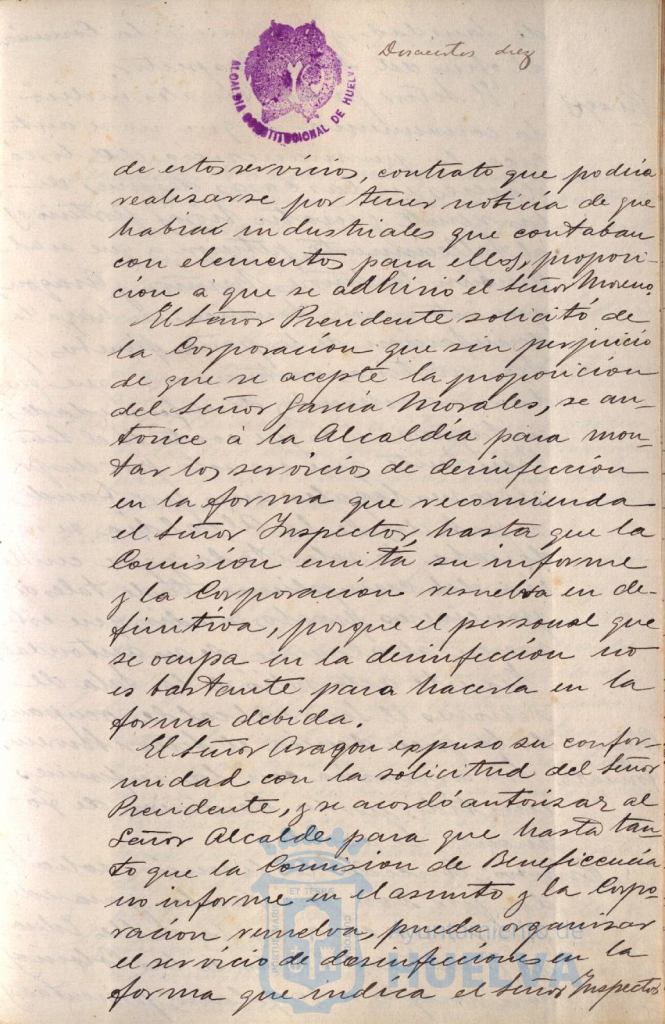 Doscientos diez
ALCALDIA CONSTITUCIONAL DE HUELVA
de estos servicios, contrato que podria
realisarse por tener noticia de que
habian industriales que contaban
con elementos para ellos, proposi-
cion a que se adhirió el Señor Moreno.
El Señor Presidente solicitó de
la Corporacion que sin perjuicio
de que se acepte la proposicion
del Señor García Morales, se au-
torice á la Alcaldía para mon-
tar los servicios de desinfección
en la forma que recomienda
el Señor Inspector, hasta que la
Comisión emita su informe
y la Corporacion resuelva en de-
finitiva, porque el personal que
se ocupa en la desinfección no
es bastante para hacerla en la
forma debida.
El Señor Aragon expuso su confor-
midad con la solicitud del Señor
Presidente, y se acordó autorisar al
Señor Alcalde para que hasta tan-
to que la Comision de Beneficencia
no informe en el asunto y la Corpo-
racion resuelva, pueda organisar
el servicio de desinfecciones en la
forma que indica el Señor Inspector
Ayuntamiento de
HUELVA